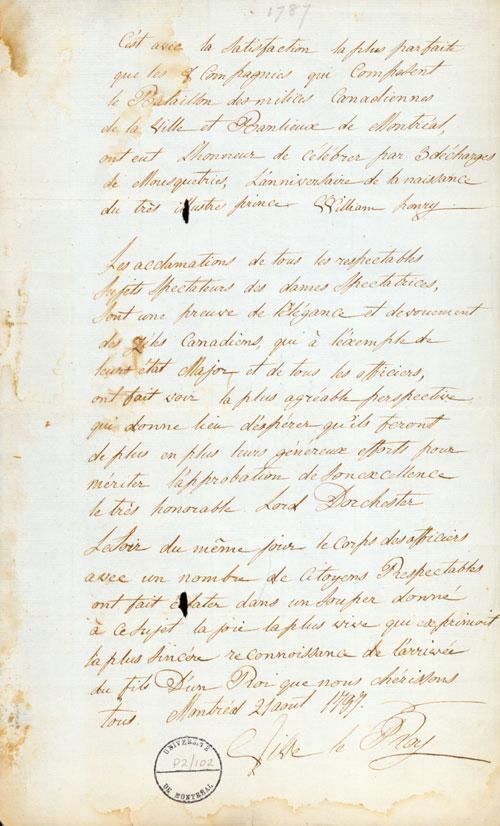 1787
C'est avec la satisfaction la plus parfaite
que les 8 Compagnies qui Composent
le Bataillon des milices Canadiennes
de la Ville et Banlieux de Montréal,
ont eut L'honneur de célébrer par 3 décharges
de Mousquetries, L'anniversaire de la naissance
du très illustre prince William henry
Les acclamations de tous les respectables
Sujets Spectateurs des dames Spectatrices,
Sont une preuve de l'élégance et devouement
des Zélés Canadiens, qui à l'éxemple de
leurs état Major et de tous les officiers,
ont fait voir la plus agréable perspective
qui donne lieu d'éspérer qu'ils feront
de plus en plus leurs généreux efforts pour
mériter l'approbation de Son excellence
le très honorable Lord Dorchester
Le Soir du même jour le Corps des officiers
avec un nombre de Citoyens Respectables
ont fait éclater dans un Souper donné
à ce Sujet la joie la plus vive qui exprimoit
la plus Sincére reconnoissance de l'arrivée
du fils D'un Roi que nous chérissons
tous. Montréal 21 aout
le Roy
UNIVERSITÉ
P2/102
DE MONTRÉAL